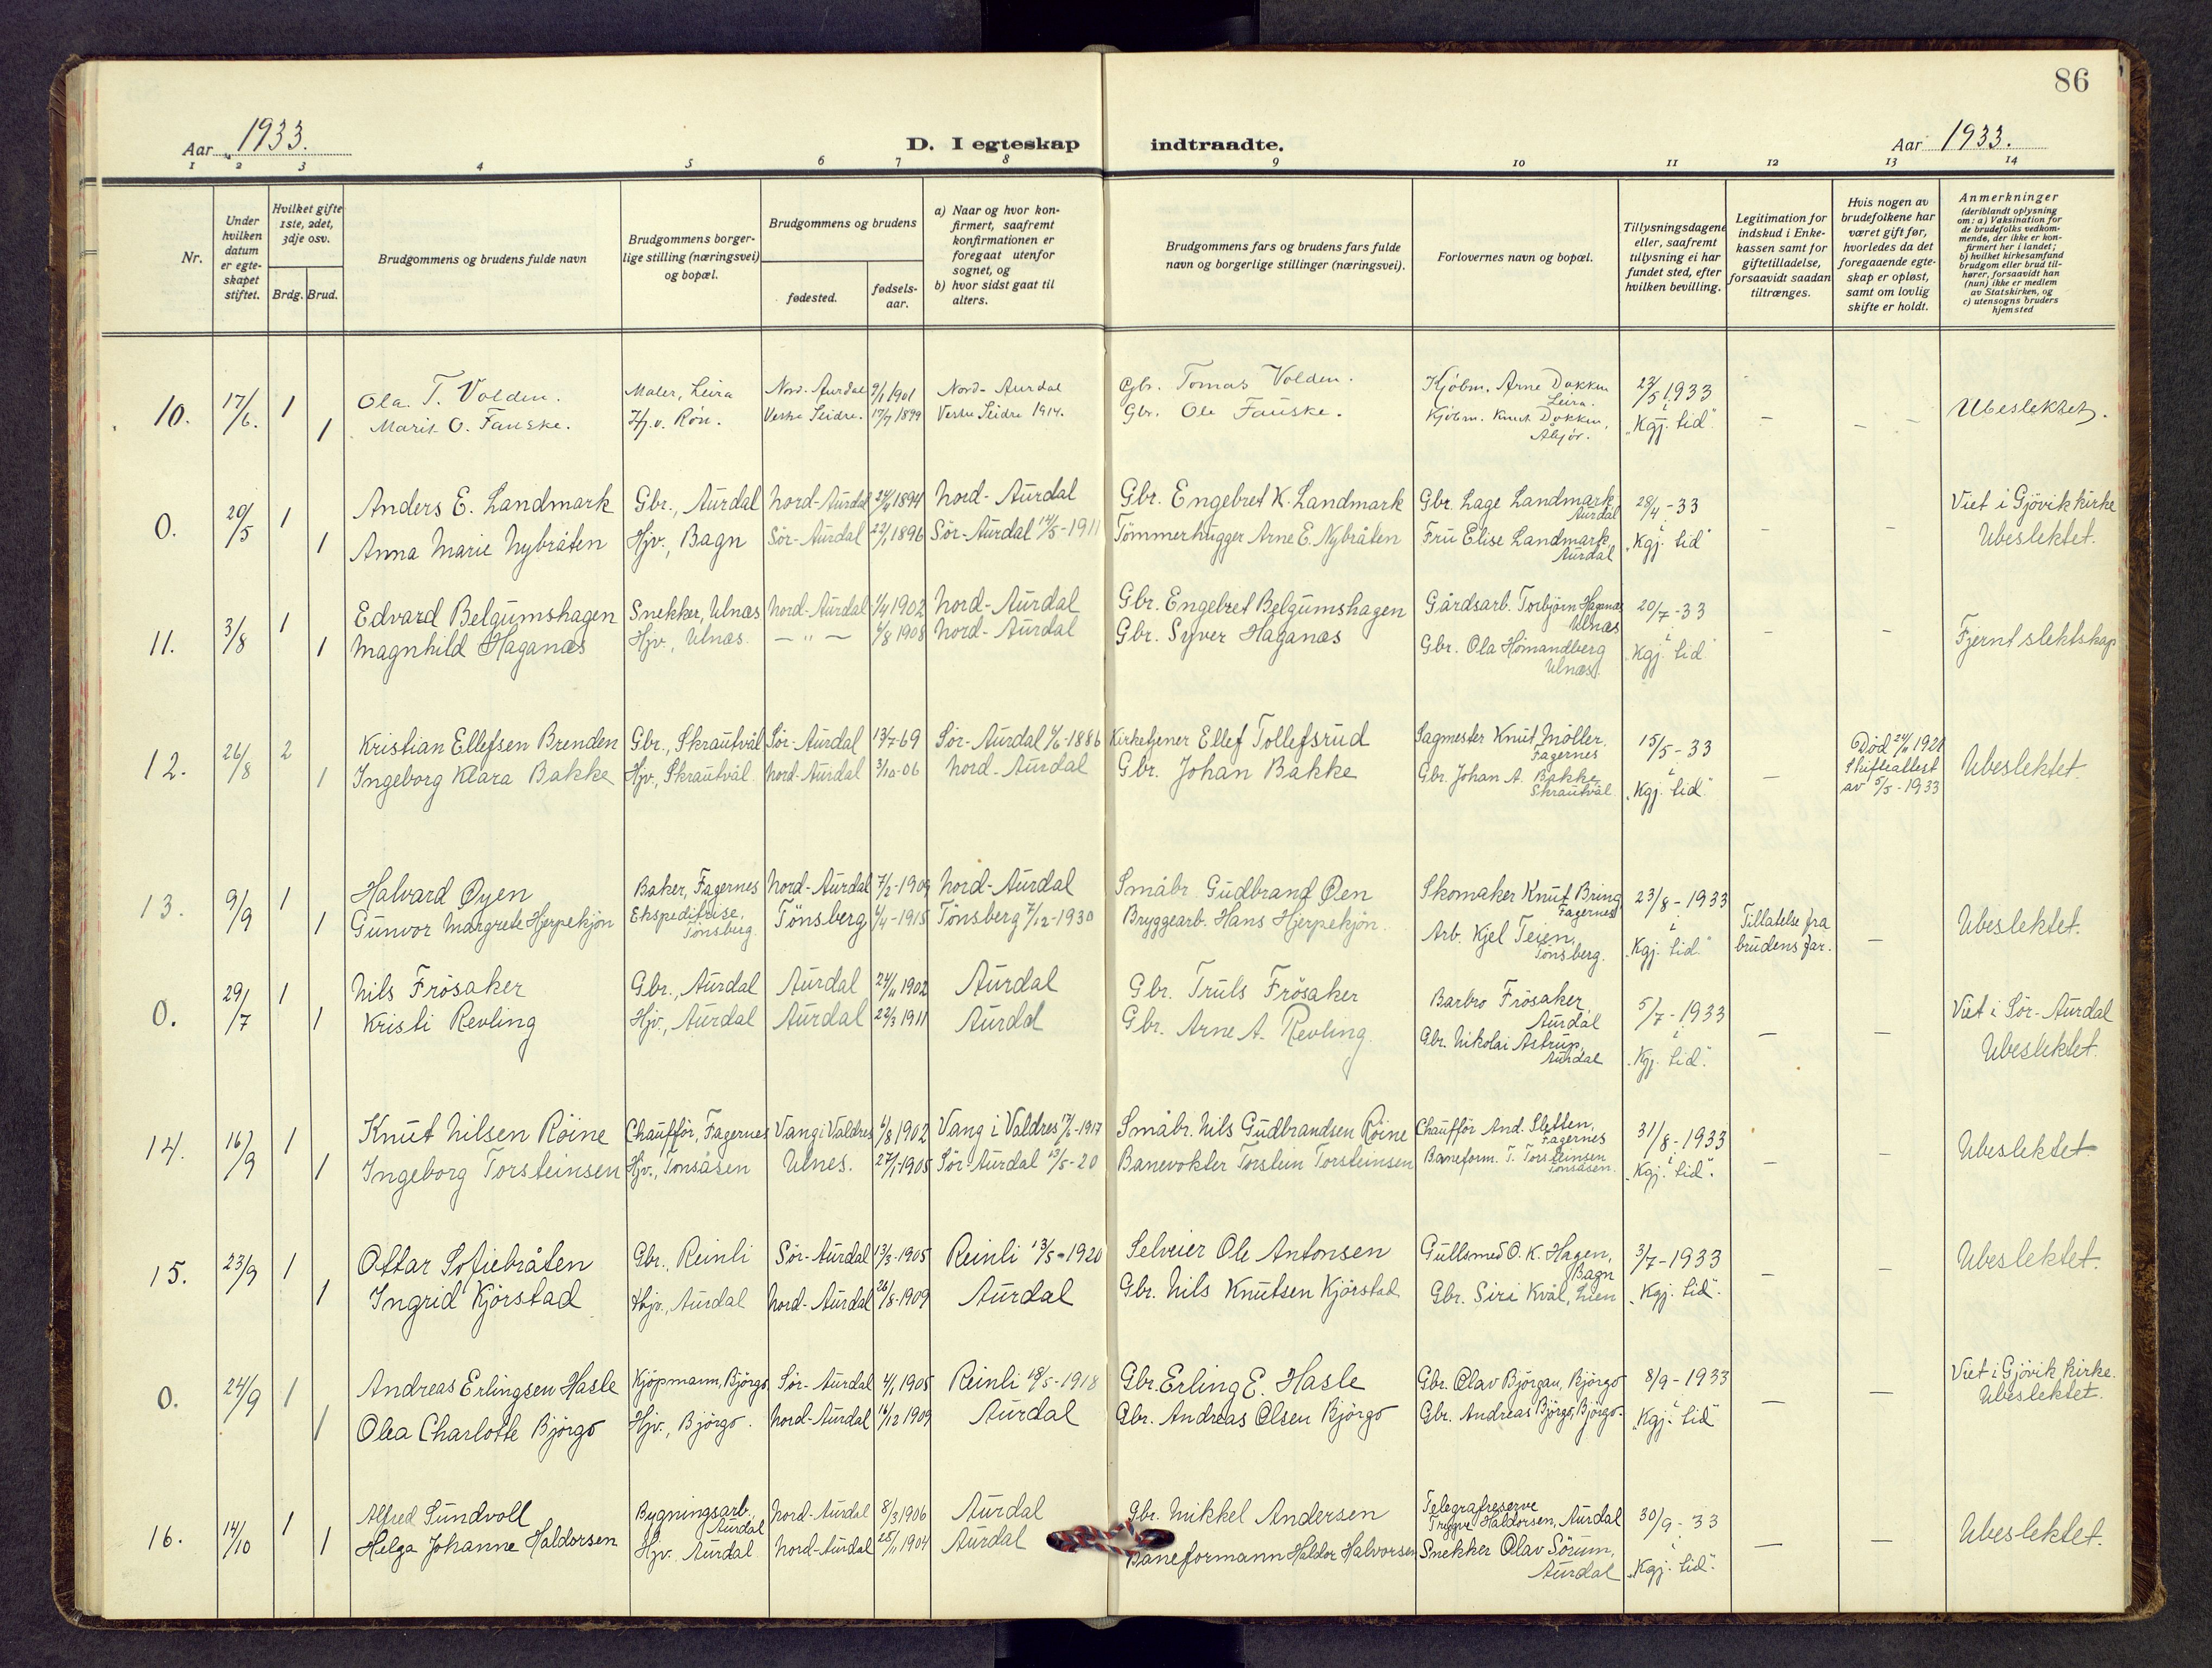 86
Aar 1933.
D. I egteskap indtraadte.
Aar 1933.
1 2 3 4 5 6 7 8 9 10 11 12 13 14
Nr.
Under hvilken datum er egteskapet stiftet.
Hvilket gifte 1ste, 2det, 3dje osv.
Brdg. Brud.
Brudgommens og brudens fulde navn
Brudgommens borgerlige stilling (næringsvei) og bopæl.
Brudgommens og brudens
fødested.
fødselsaar.
a) Naar og hvor konfirmert, saafremt konfirmationen er foregaat utenfor sognet, og
b) hvor sidst gaat til alters.
Brudgommens fars og brudens fars fulde navn og borgerlige stillinger (næringsvei).
Forlovernes navn og bopæl.
Tillysningsdagene eller, saafremt tillysning ei har fundet sted, efter hvilken bevilling.
Legitimation for indskud i Enkekassen samt for giftetilladelse, forsaavidt saadan tiltrænges.
Hvis nogen av brudefolkene har været gift før, hvorledes da det foregaaende egteskap er opløst, samt om lovlig skifte er holdt.
Anmerkninger (deriblandt oplysning om: a) Vaksination for de brudefolks vedkommende, der ikke er konfirmert her i landet; b) hvilket kirkesamfund brudgom eller brud tilhører, forsaavidt han (hun) ikke er medlem av Statskirken, og c) utensogns bruders hjemsted
10. 17/6. 1 Ola T. Volden. Maler, Leira Nord-Aurdal 9/1 1901 Nord-Aurdal Gbr. Tomas Volden. Kjöbm. Arne Dokken Leira. 23/5 1933 Ubeslektet.
1 Marit O. Fauske. Hj.v. Røn. Vestre Slidre. 17/7 1899 Vestre Slidre 1914. Gbr. Ole Fauske. Kjöbm. Knut Dokken, Åbjör. i "Kgj. tid" — — —
0. 20/5 1 Anders E. Landmark Gbr., Aurdal Nord-Aurdal 24/4 1894 Nord-Aurdal Gbr. Engebret K. Landmark Gbr. Lage Landmark Aurdal 28/4-33 Viet i Gjövik kirke
1 Anna Marie Nybråten Hjv., Bagn Sör-Aurdal 22/1 1896 Sör-Aurdal 14/5-1911 Tömmerhugger Arne E. Nybråten Fru Elise Landmark, Aurdal i "Kgj. tid" — — Ubeslektet.
11. 3/8 1 Edvard Belgumshagen Snekker, Ulnæs Nord-Aurdal 1/4 1902 Nord-Aurdal Gbr. Engebret Belgumshagen Gårdsarb. Torbjörn Haganæs Ulnæs 20/7-33
1 Magnhild Haganæs Hjv., Ulnæs. — " — 6/8 1908 Nord-Aurdal Gbr. Syver Haganæs Gbr. Ola Hömandberg Ulnæs. i "Kgj. tid" — — Fjernt slektskap
12. 26/8 2 Kristian Ellefsen Brenden Gbr., Skrautvål Sör-Aurdal 13/7-69 Sör-Aurdal 6/6-1886 Kirketjener Ellef Tollefsrud Sagmester Knut Möller, Fagernes 15/5-33 Död 24/11 1921 Skifteattest av 5/5-1933
1 Ingeborg Klara Bakke Hjv., Skrautvål Nord-Aurdal 3/10-06 Nord-Aurdal Gbr. Johan Bakke Gbr. Johan A. Bakke Skrautvål i "Kgj. tid" — Ubeslektet.
13. 9/9 1 Halvard Øyen Baker, Fagernes Nord-Aurdal 7/2-1909 Nord-Aurdal Småbr. Gudbrand Øen Skomaker Knut Bring Fagernes 23/8-1933
1 Gunvor Margrete Hjerpekjön Ekspeditrise, Tönsberg Tönsberg 4/4-1915 Tönsberg 7/12-1930 Bryggearb. Hans Hjerpekjön. Arb. Kjel Teien, Tönsberg. i "Kgj. tid." Tillatelse fra brudens far. — Ubeslektet.
0. 29/7 1 Nils Frösaker Gbr., Aurdal Aurdal 24/11 1902 Aurdal Gbr. Truls Frösaker Barbro Frösaker, Aurdal 5/7-1933 Viet i Sör-Aurdal
1 Kristi Revling Hjv., Aurdal Aurdal 22/3 1911 Aurdal Gbr. Arne A. Revling. Gbr. Nikolai Astrup, Aurdal i "Kgj. tid". — — Ubeslektet.
14. 16/9 1 Knut Nilsen Röine Chaufför, Fagernes Vang i Valdres 6/8 1902 Vang i Valdres 17/6-1917 Småbr. Nils Gudbrandsen Röine Chaufför And. Sletten, Fagernes 31/8-1933
1 Ingeborg Torsteinsen Hjv., Tonsåsen Ulnes. 27/1-1905 Sör-Aurdal 13/5-20 Banevokter Torstein Torsteinsen Baneform. T. Torsteinsen Tonsåsen. i "Kgj. tid". — — Ubeslektet.
15. 23/9 1 Ottar Sofiebråten Gbr., Reinli Sör-Aurdal 13/3-1905 Reinli 13/5-1920 Selveier Ole Antonsen Gullsmed O. K. Hagen, Bagn 3/7-1933 Ubeslektet.
1 Ingrid Kjörstad Hjv., Aurdal Nord-Aurdal 26/8-1909 Aurdal Gbr. Nils Knutsen Kjörstad Gbr. Siri Kvål, Lien "Kgj. tid". — —
0. 24/9 1 Andreas Erlingsen Hasle Kjöpmann, Björgo Sör-Aurdal 4/1 1905 Reinli 18/5-1918 Gbr. Erling E. Hasle Gbr. Olav Björgan, Björgo 8/9-1933 Viet i Gjövik kirke.
1 Olea Charlotte Björgo Hjv., Björgo. Nord-Aurdal 16/12 1909 Aurdal Gbr. Andreas Olsen Björgo Gbr. Andreas Björgo, Björgo. i "Kgj. tid" — — Ubeslektet.
16. 14/10 1 Alfred Sundvoll Bygningsarb., Aurdal Nord-Aurdal 8/3 1906 Aurdal Gbr. Mikkel Andersen Telegrafreserve Trygve Haldorsen, Aurdal 30/9-33
1 Helga Johanne Haldorsen Hjv. Aurdal Nord-Aurdal 25/11 1904 Aurdal Baneformann Haldor Halvorsen Snekker Olav Sörum, Aurdal i "Kgj. tid". — — Ubeslektet.